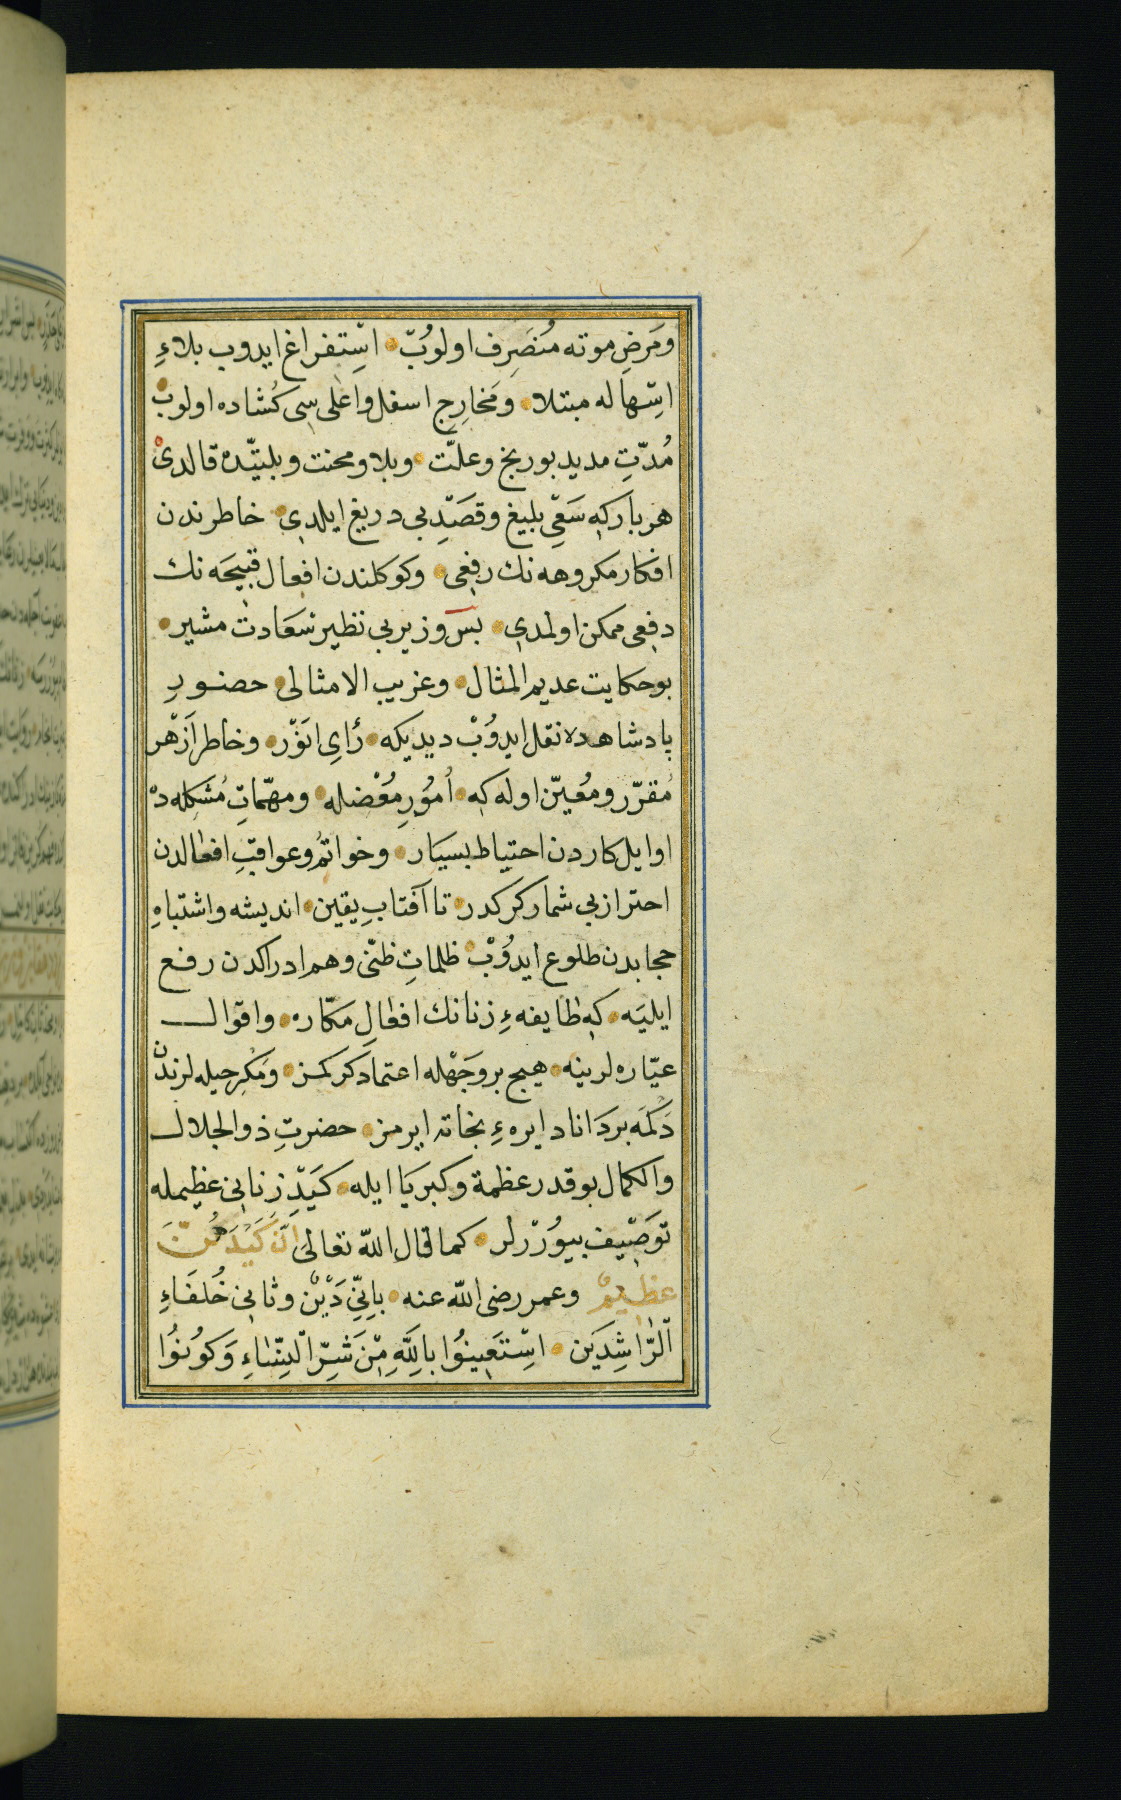 ومَرضِ موته مُنصَرِف اولوُبْ اسْتِفراغ ايدوب بلاءِ
اسْهاله مبتلا ومَخارِجِ اسفل واعلى سى كُشاده اولوب
مُدّتِ مديد بو رنج وعلّت وبلا ومحنت وبليّتده قالدىْ
هر بار كه سَعْىِ بليغ وقَصْدِ بى دريغ ايلدى خاطرندن
افكار مكروهه نك رفعى وكوكلندن افعال قبيحَه نك
دفعى ممكن اولمدى پس وزير بى نظير سَعَادت مشير
بو حكايت عديم المثال وغريب الامثالى حضور
پادشاهده نقل ايدوُبْ ديديكه رُاىِ انوَر وخاطر اَزْهر
مُقرّر ومُعيّن اوله كه اُموُرِ مُعْضله ومهمّاتِ مُشكِله دْ
اوايل كاردن احتياط بسيَار وخواتمُ وعواقبِ افعالدن
احتراز بى شمار كركدر تا آفتابِ يقين انديشه واشتباهِ
حجابدن طلوع ايدوُبْ ظلماتِ ظنّى وهم ادراكدن رفع
ايليَه كه طايفهءِ زنانك افعالِ مَكّاره واقوال
عيّاره لرينه هيچ بر وَجْهله اعتماد كركمز ومَكْر حيله لرندن
دَكْمَه بر دَانا دايرهءِ نجاته ايرمز حضرتِ ذو الجلال
والكمال بو قدر عظمة وكبريَا ايله كَيْدِ زنانى عظيمله
توَصْيف بيوُرْرلر كما قال اللّه تعالىٰ اِنَّ كَيْدَ كُنَّ
عَظيمٌ وعمر رضى اللّه عنه بانِّى دَيْن وثانى خُلَفَاءِ
اَلرَّاشِدَين اسْتَعينُوا بِاللَّهِ مِنْ شَرِّ النِّسٰاءِ وَكوُنوُا